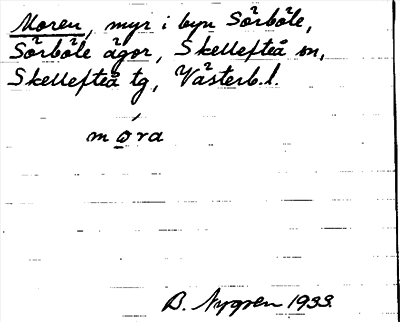 Moren, myr i byn Sörböle,
Sörböle ägor, Skellefteå sn,
Skellefteå tg, Västerb.l.
mọra
B. Nygren 1933.